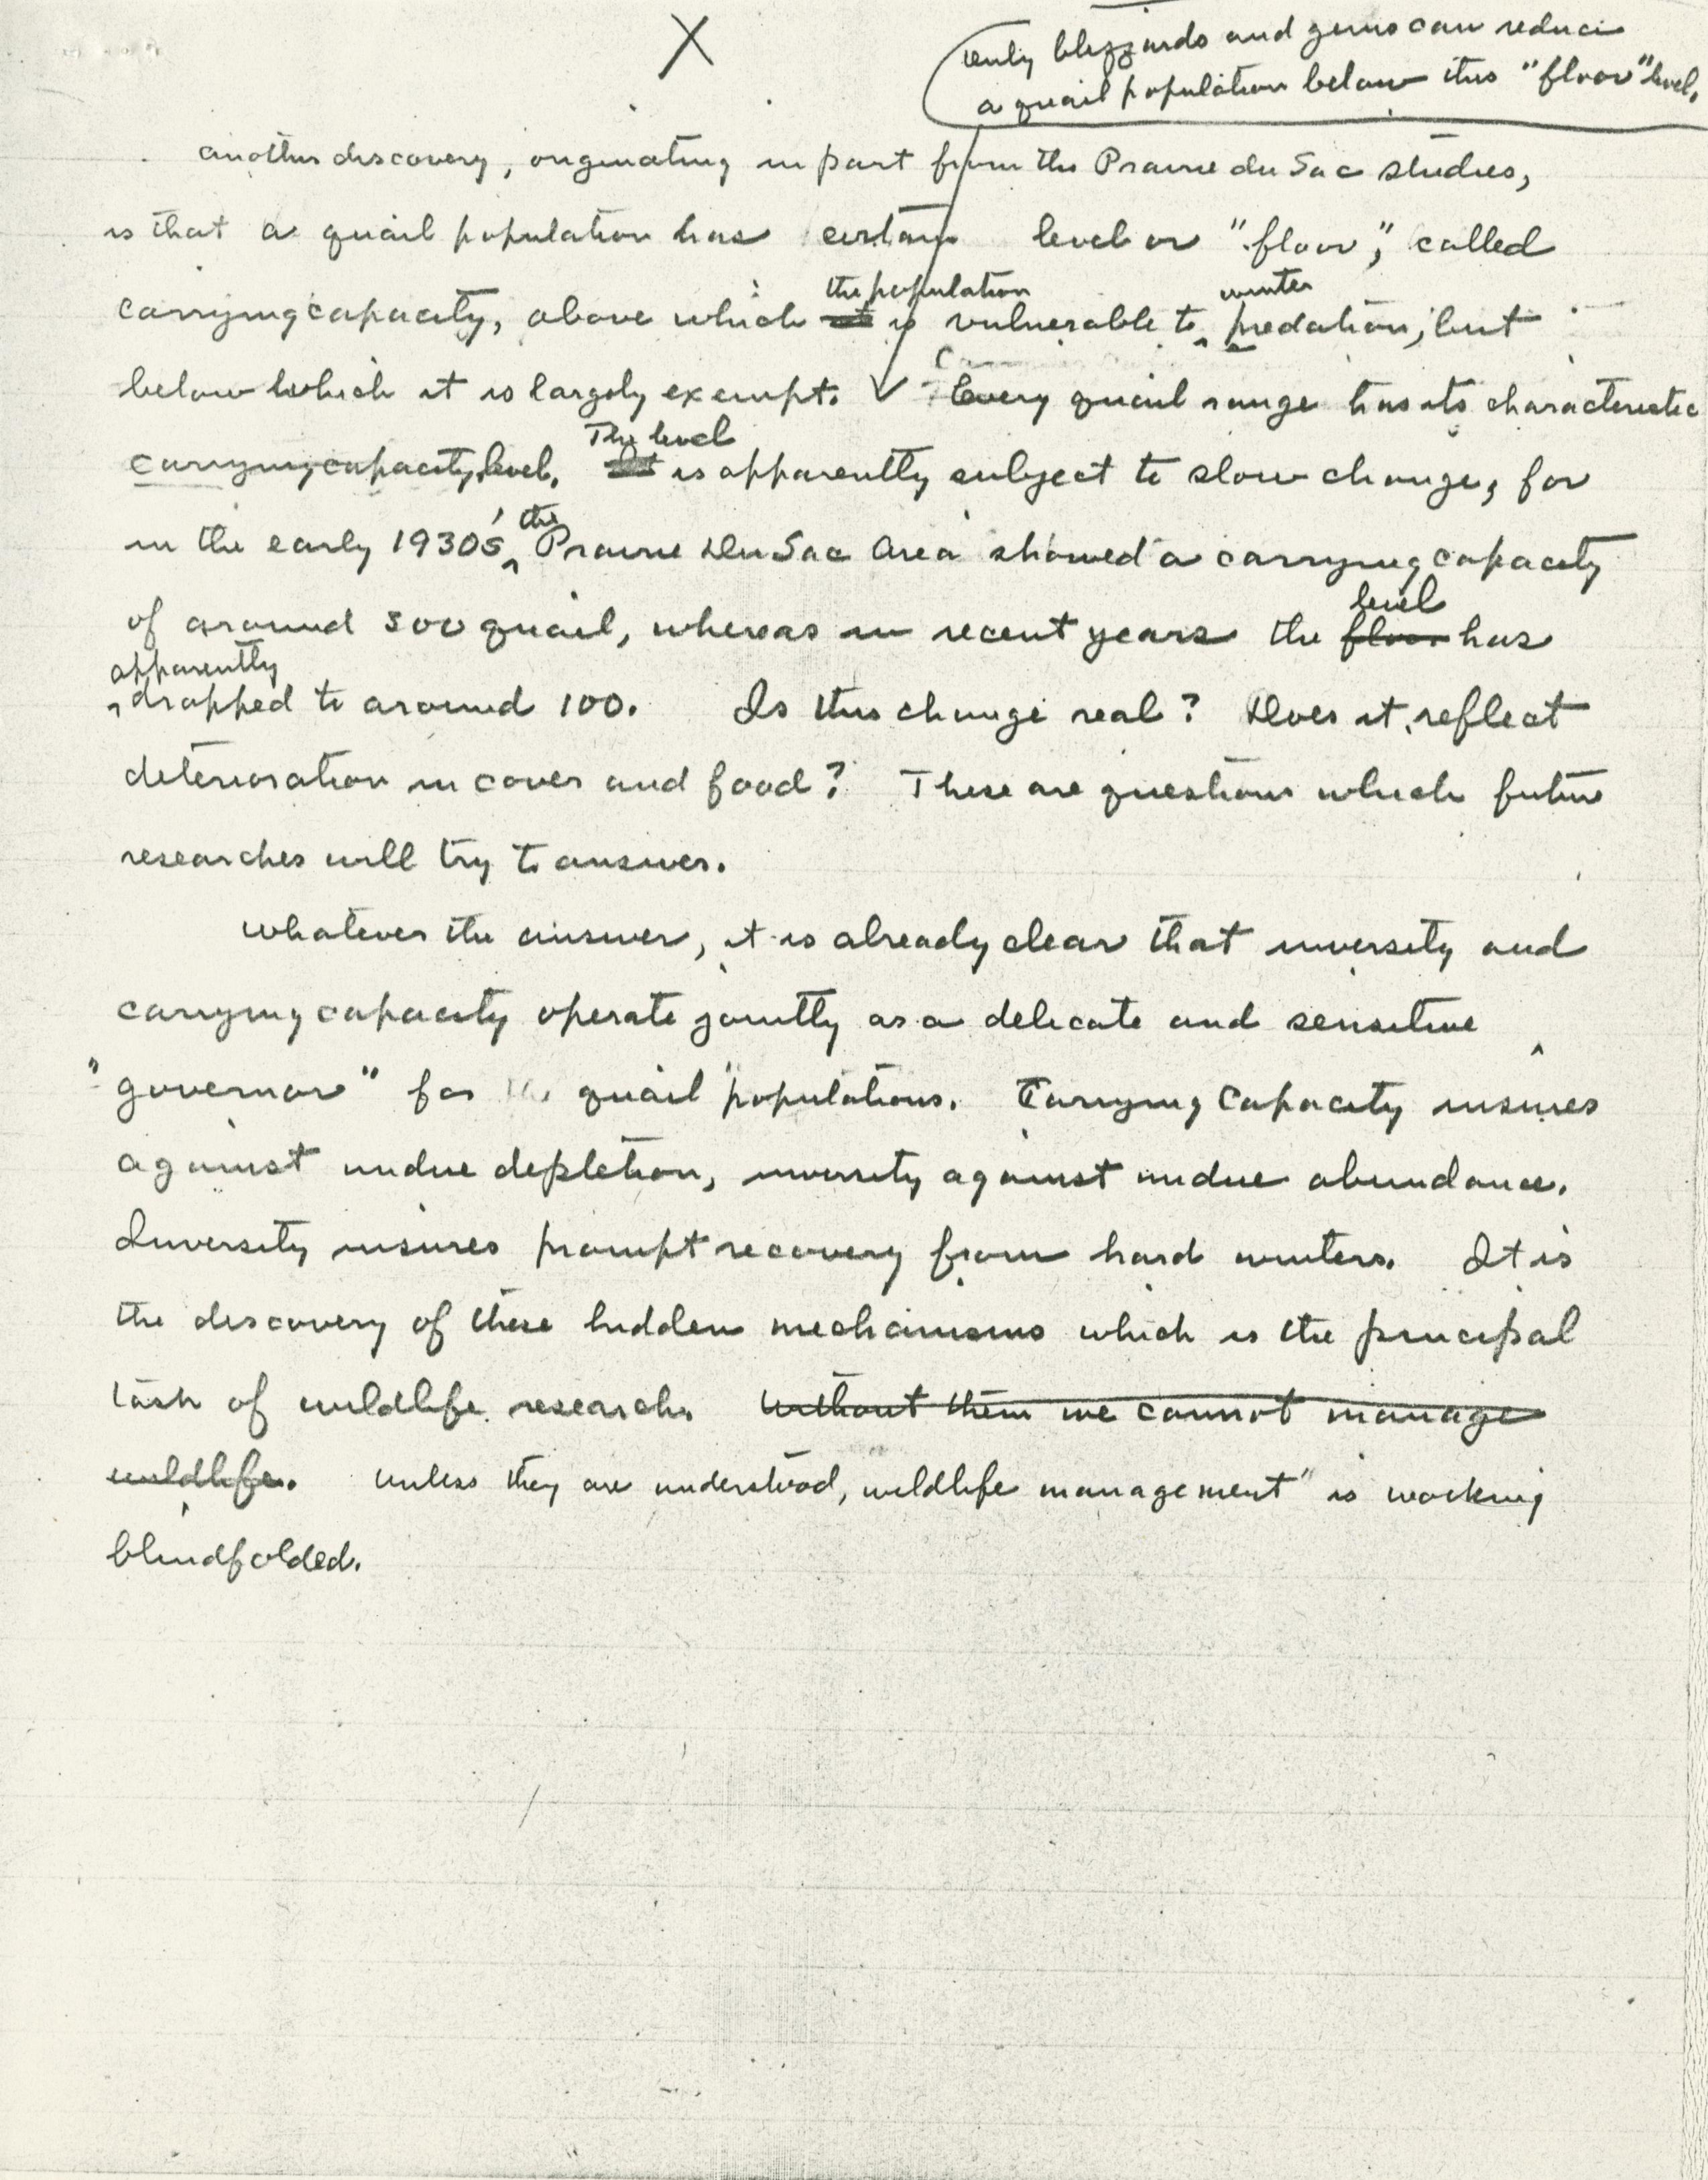 X
Only blizzards and germs can reduce
a quail population below this "floor" level.
another discovery, originating in part from the Prairie du Sac studies,
is that a quail population has certain level or "floor", called
the population winter
carrying capacity, above which it is vulnerable to predation, but
below which it is largely exempt. Every quail range has its characteristic
The level
carrying capacity level. is apparently subject to slow change, for
the
in the early 1930s', Prairie Du Sac Area showed a carrying capacity
level
of around 300 quail, whereas in recent years the floor has
apparently
dropped to around 100. Is this change real? Does it reflect
deterioration in cover and food? These are questions which future
researches will try to answer.
Whatever the answer, it is already clear that inversity and
carrying capacity operate jointly as a delicate and sensitive
"governor" for quail populations. Carrying Capacity insures
against undue depletion, inversity against undue abundance.
Inversity insures prompt recovery from hard winters. It is
the discovery of these hidden mechanisms which is the principal
task of wildlife research. Without them we cannot manage
wildlife. Unless they are understood, wildlife management" is working
blindfolded.